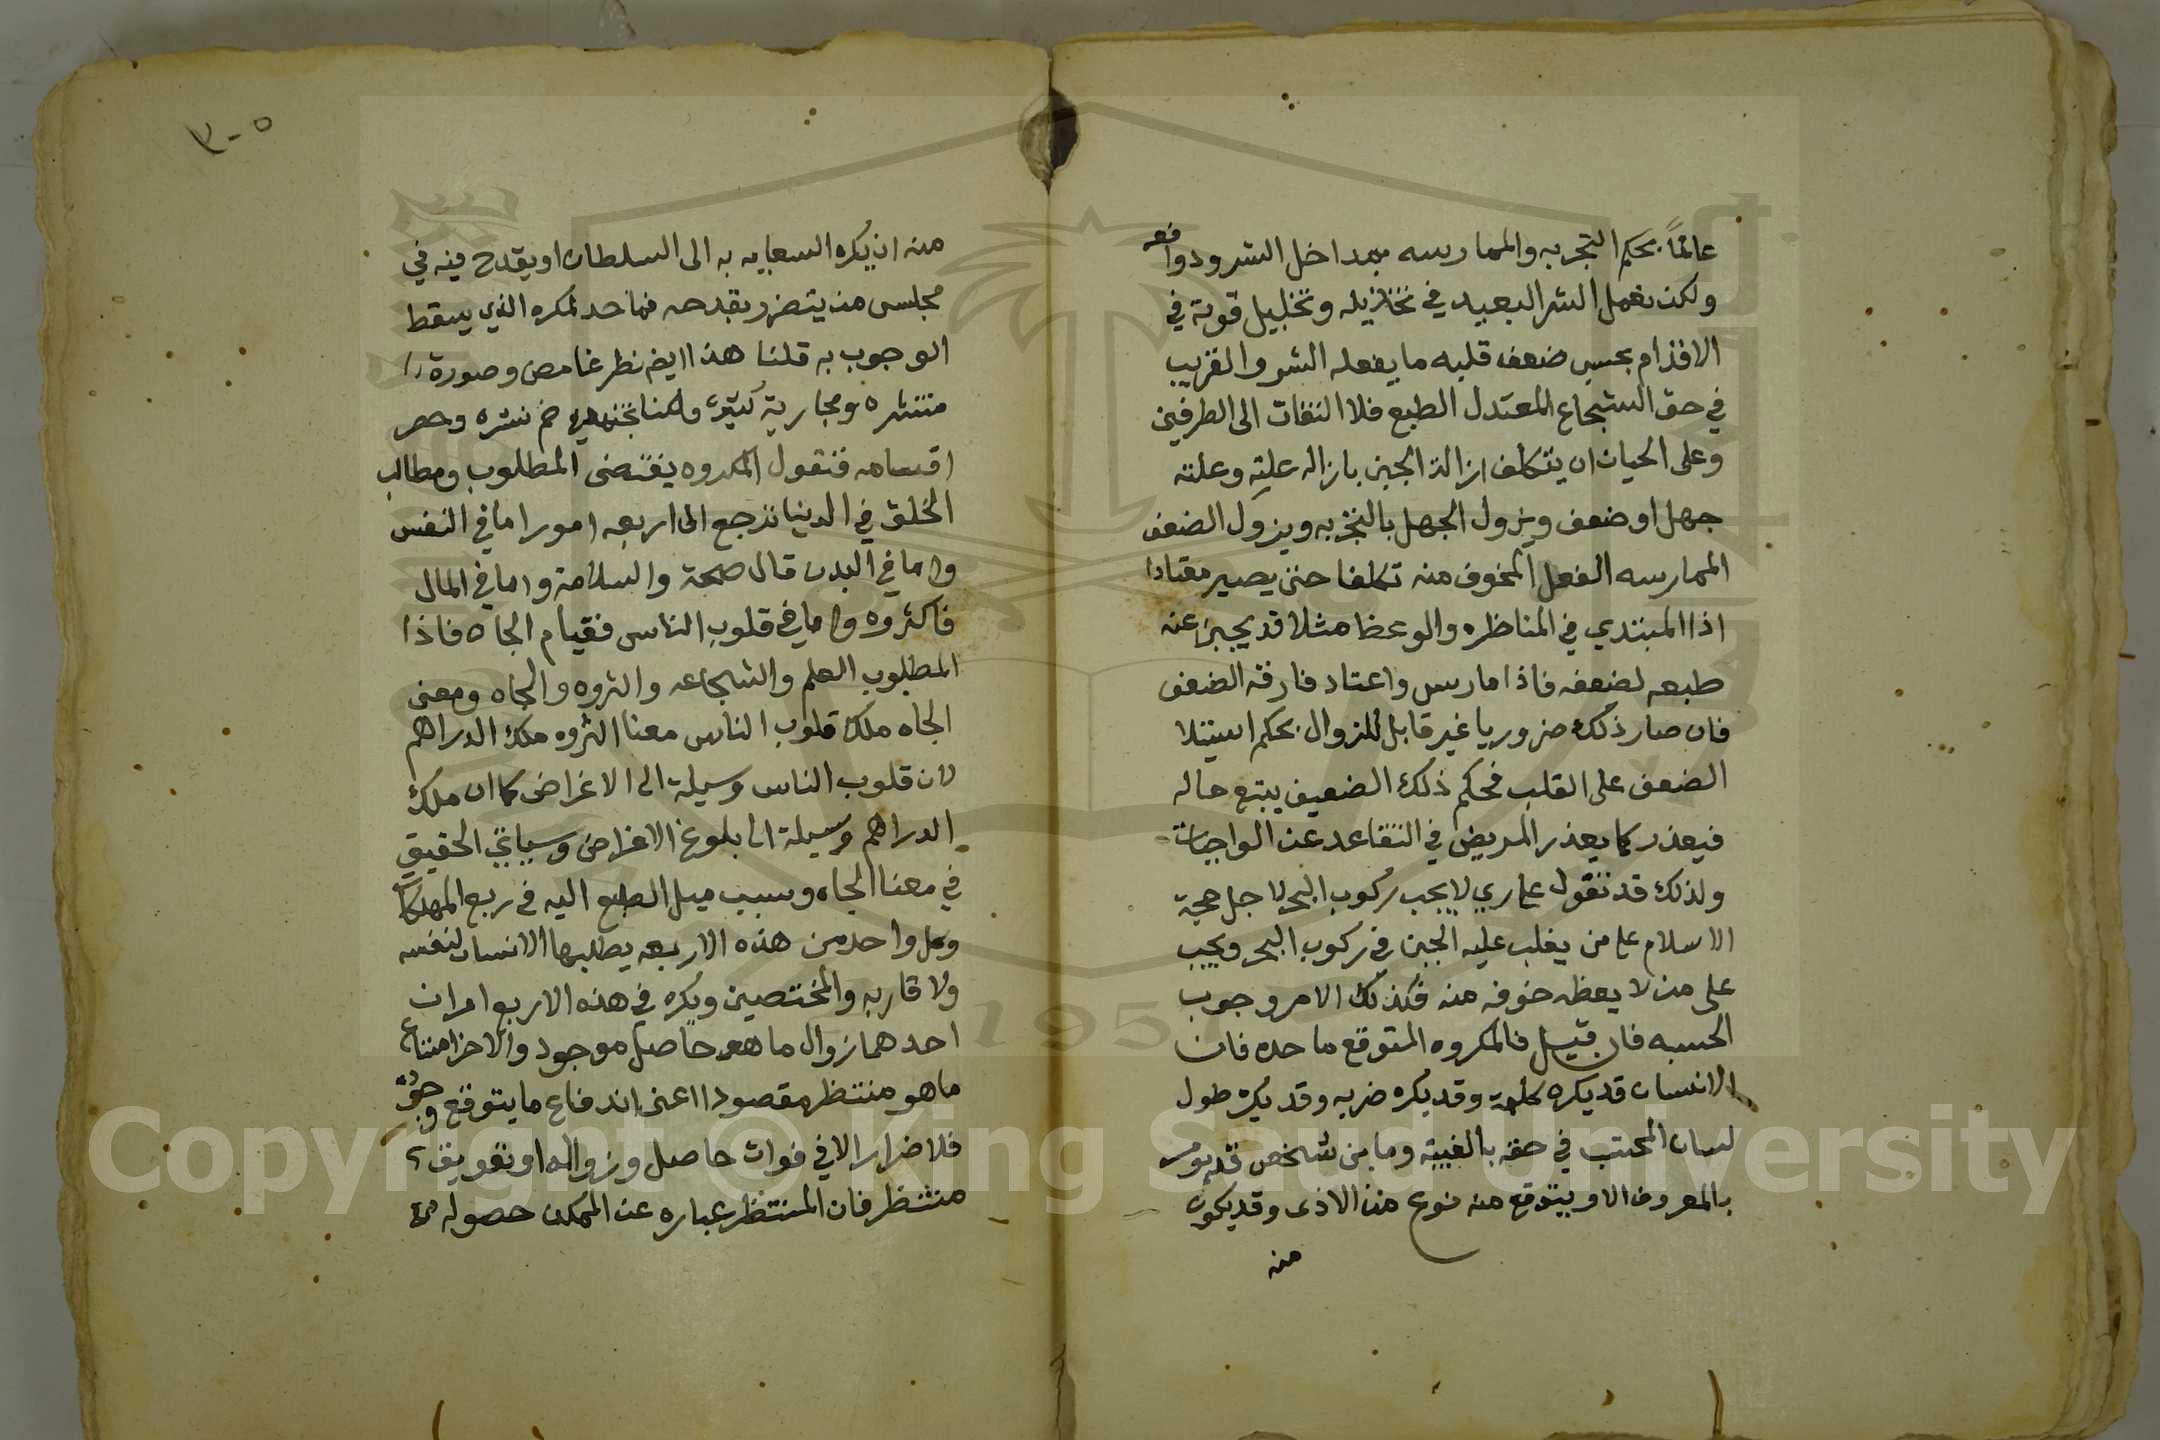 عالماً بحكم التجربه والممارسه بمداخل الشر ودوافعه
ولكن يعمل الشر البعيد في تخذيله وتخليل قوته في
الاقدام بحسب ضعف قلبه ما يفعله الشر القريب
في حق الشجاع المعتدل الطبع فلا التفات الى الطرفين
وعلى الجبان ان يتكلف ازالة الجبن بازاله علته وعلته
جهل او ضعف ويزول الجهل بالتجربه ويزول الضعف
الممارسه الفعل المخوف منه تكلفا حتى يصير معتادا
اذا المبتدي في المناظره والوعظ مثلا قد يجبن عنه
طبعه لضعفه فاذا مارس واعتاد فارقه الضعف
فان صار ذلك ضروريا غير قابل للزوال بحكم استيلا
الضعف على القلب فحكم ذلك الضعيف يتبع حاله
فيعذر كما يعذر المريض في التقاعد عن الواجبات
ولذلك قد نقول على راي لا يجب ركوب البحر لاجل حجة
الاسلام على من يغلب عليه الجبن في ركوب البحر ويجب
على من لا يعظم خوفه منه فكذلك الامر وجوب
الحسبه فان قيل فالمكروه المتوقع ما حده فان
الانسان قد يكره كلمة وقد يكره ضربه وقد يكره طول
لسان المحتسب في حقه بالغيبة وما من شخص
بالمعروف الا ويتوقع منه نوع من الاذى وقد يكون
منه
٣٠٥
منه ان يكره السعايه به الى السلطان او يقدح فيه في
مجلس من يتضرر بقدحه فما حد المكره الذي يسقط
الوجوب به قلنا هذا ايض نظر غامض وصورة
منتشره ومجاريه كثيرة ولكنا نجتهد في ضم نشره وحصر
اقسامه فنقول المكروه يقتضى المطلوب ومطالب
الخلق في الدنيا ترجع الى اربعه امور اما في النفس
واما في البدن فالصحة والسلامة واما في المال
فاكثروه واما في قلوب الناس فقيام الجاه فاذا
المطلوب العلم والشجاعه والثروه والجاه ومعنى
الجاه ملك قلوب الناس معنا الثروه ملك الدراهم
لان قلوب الناس وسيلة الى الاغراض كما ان ملك
الدراهم وسيلة الى بلوغ الاغراض وسياتي الحقيق
في معنا الجاه وسبب ميل الطبع اليه في ربع المهلكات
وكل واحد من هذه الاربعه يطلبها الانسان لنفسه
ولاقاربه والمختصين ويكره في هذه الاربع امران
احدهما زوال ما هو حاصل موجود والاخر امتناع
ما هو منتظر مقصود اعنى اندفاع ما يتوقع
فلا ضرار الا في فوات حاصل وزواله او تعويق
منتظر فان المنتظر عباره عن الممكن حصوله